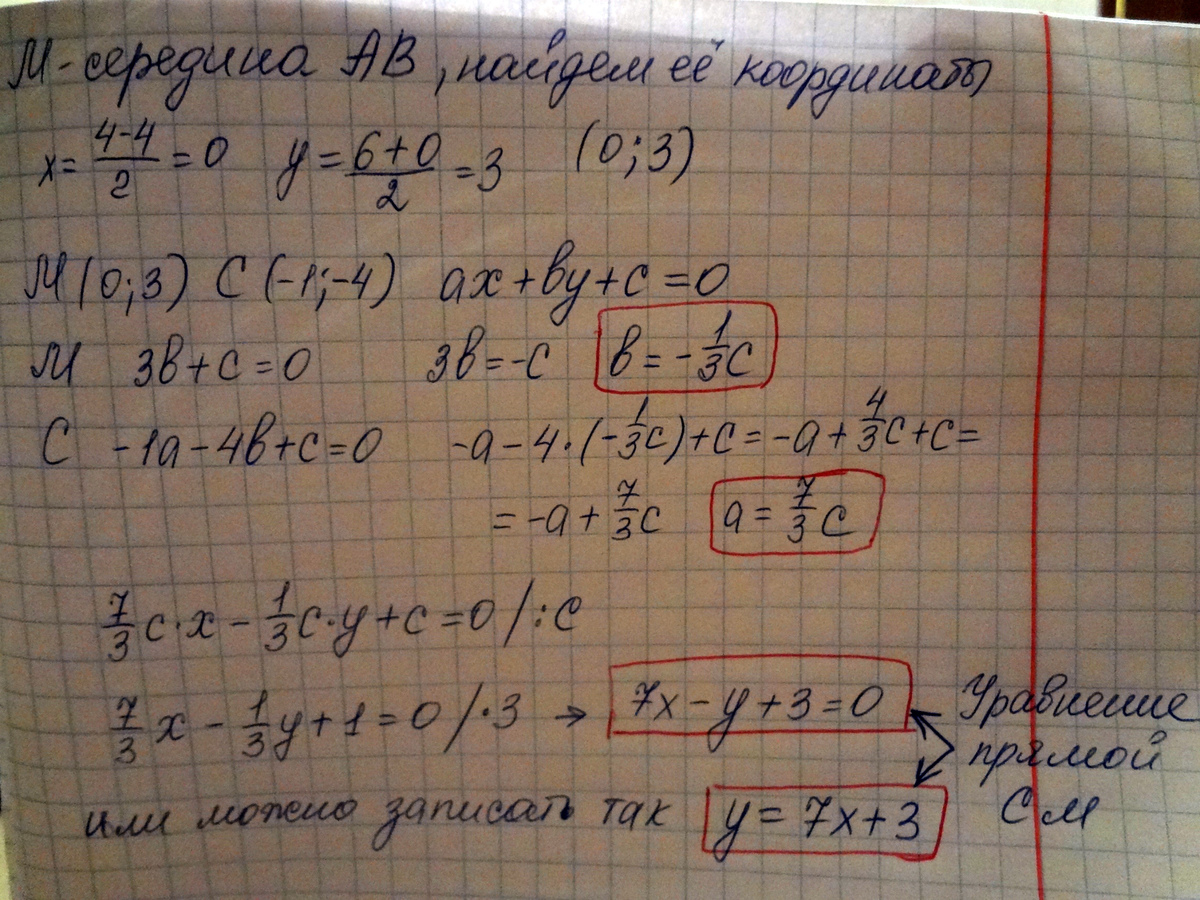 М - середина АВ, найдем её координаты
x = \frac{4-4}{2} = 0 y = \frac{6+0}{2} = 3 (0; 3)
М (0; 3) С (-1; -4) ax + вy + c = 0
М 3в + c = 0 3в = -c в = -\frac{1}{3}c
С -1a - 4в + c = 0 -a - 4 · (-\frac{1}{3}c) + c = -a + \frac{4}{3}c + c =
= -a + \frac{7}{3}c a = \frac{7}{3}c
\frac{7}{3}c · x - \frac{1}{3}c · y + c = 0 / : c
\frac{7}{3}x - \frac{1}{3}y + 1 = 0 / · 3 → 7x - y + 3 = 0 Уравнение
прямой
или можно записать так y = 7x + 3 СМ